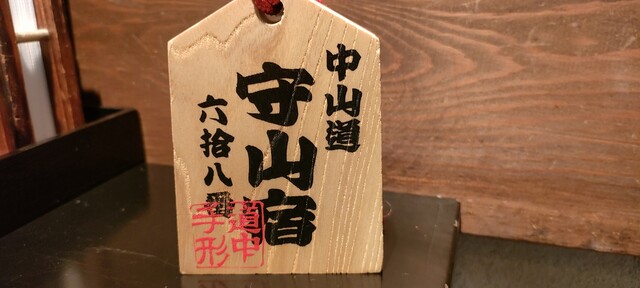 中山道
守山宿
六拾八番
道中
手形